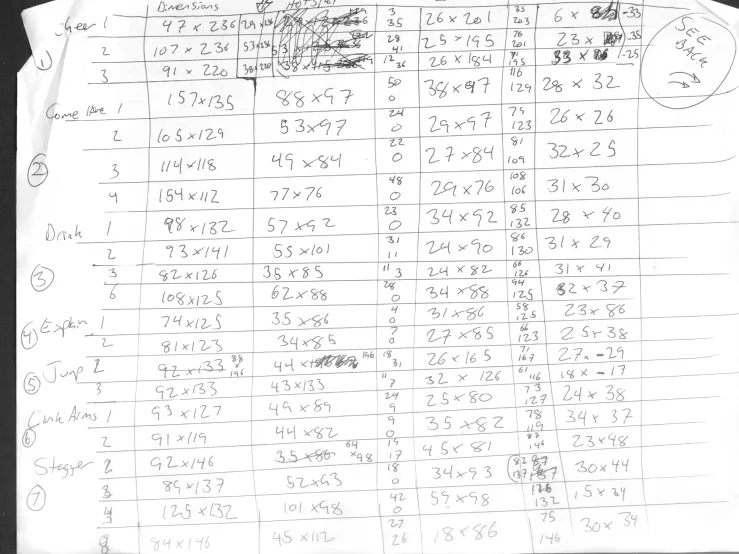 Dimensions
Cheer 1 47 x 236 29 x 236 3 35 26 x 201 35 203 6 x -33
① 2 107 x 236 53 x 236 28 41 25 x 195 76 201 23 x -35
3 91 x 220 38 x 220 12 36 26 x 184 71 195 33 x -25
SEE BACK
Come Here 1 157x135 88 x 97 50 0 38 x 97 116 129 28 x 32
2 105 x 129 53x97 24 0 29 x 97 79 123 26 x 26
② 3 114 x 118 49 x 84 22 0 27 x 84 81 109 32 x 25
4 154 x 112 77 x 76 48 0 29 x 76 108 106 31 x 30
Drink 1 98 x 132 57 x 92 23 0 34 x 92 85 132 28 x 40
2 93 x 141 55 x 101 31 11 24 x 90 86 130 31 x 29
③ 3 82 x 126 35 x 85 11 3 24 x 82 66 126 31 x 41
6 108 x 125 62 x 88 28 0 34 x 88 94 125 32 x 37
④ Explain 1 74 x 125 35 x 86 4 0 31 x 86 58 125 23 x 86
2 81 x 123 34 x 85 7 0 27 x 85 66 123 25 x 38
⑤ Jump 2 92 x 133 88 x 196 44 x 196 18 31 26 x 165 71 167 27 x -29
3 92 x 133 43 x 133 11 7 32 x 126 61 116 18 x -17
Link Arms 1 93 x 127 49 x 89 24 9 25 x 80 73 127 24 x 38
⑥ 2 91 x 119 44 x 82 9 0 35 x 82 78 119 34 x 37
Stagger 2 92 x 146 35 x 86 64 x 98 19 17 45 x 81 87 146 23 x 48
⑦ 3 89 x 137 52 x 93 18 0 34 x 93 82 137 30 x 44
4 125 x 132 101 x 98 42 0 59 x 98 132 15 x 34
8 84 x 146 45 x 112 27 26 18 x 86 75 146 30 x 34